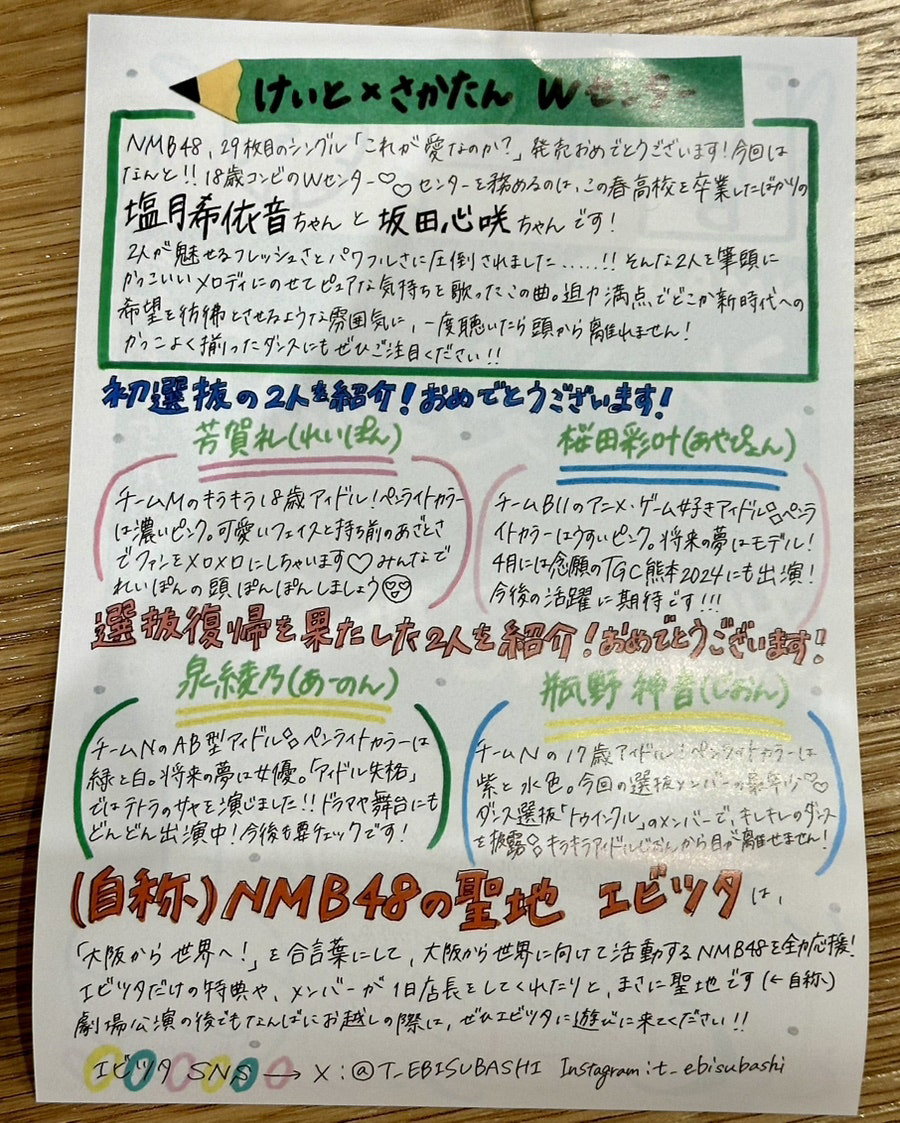 けいと×さかたん Wセンター
NMB48、29枚目のシングル「これが愛なのか?」発売おめでとうございます!今回は
なんと!!18歳コンビのWセンター♡♡センターを務めるのは、この春高校を卒業したばかりの
塩月希依音ちゃんと坂田心咲ちゃんです!
2人が魅せるフレッシュさとパワフルさに圧倒されました……!!そんな2人を筆頭に
かっこいいメロディにのせてピュアな気持ちを歌ったこの曲。迫力満点でどこか新時代への
希望を彷彿とさせるような雰囲気に、一度聴いたら頭から離れません!
かっこよく揃ったダンスにもぜひご注目ください!!
初選抜の2人を紹介!おめでとうございます!
芳賀礼(れいぽん)
チームMのキラキラ18歳アイドル!ペンライトカラー
は濃いピンク。可愛いフェイスと持ち前のあざとさ
でファンをメロメロにしちゃいます♡みんなで
れいぽんの頭ぽんぽんしましょう
桜田彩叶(あやぴょん)
チームBIIのアニメ・ゲーム好きアイドル ペンラ
イトカラーはうすいピンク。将来の夢はモデル!
4月には念願のTGC熊本2024にも出演!
今後の活躍に期待です!!!
選抜復帰を果たした2人を紹介!おめでとうございます!
泉綾乃(あーのん)
チームNのAB型アイドル ペンライトカラーは
緑と白。将来の夢は女優。「アイドル失格」
ではテトラのサヤを演じました!!ドラマや舞台にも
どんどん出演中!今後も要チェックです!
瓶野神音(じおん)
チームNの17歳アイドル!ペンライトカラーは
紫と水色。今回の選抜メンバーの最年少♡♡
ダンス選抜「トゥインクル」のメンバーで、キレキレのダンス
を披露 キラキラアイドルじおんから目が離せません!
(自称)NMB48の聖地 エビツタは、
「大阪から世界へ!」を合言葉にして、大阪から世界に向けて活動するNMB48を全力応援!
エビツタだけの特典や、メンバーが1日店長をしてくれたりと、まさに聖地です(←自称)
劇場公演の後でもなんばにお越しの際は、ぜひエビツタに遊びに来てください!!
エビツタ SNS → X:@T_EBISUBASHI Instagram:t_ebisubashi